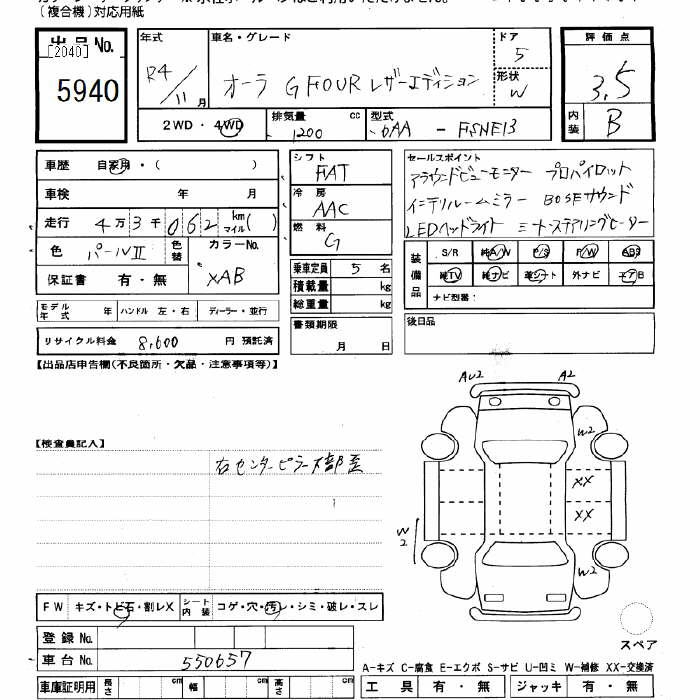 (複合機)対応用紙
出品No.
[2040]
5940
年式
R4/11月
車名・グレード
オーラ G FOUR レザーエディション
ドア
5
形状
W
評価点
3.5
内装
B
2WD・4WD
排気量 cc
1200
型式
6AA - FSNE13
車歴 自家用・( )
車検 年 月
走行 4万3千062 km マイル( )
色 パールII
色替
カラーNo.
XAB
保証書 有・無
モデル年式 年 ハンドル 左・右 ディーラー・並行
リサイクル料金 8,600 円 預託済
シフト
FAT
冷房
AAC
燃料
G
乗車定員 5 名
積載量 kg
総重量 kg
書類期限
月 日
セールスポイント
アラウンドビューモニター プロパイロット
インテリルームミラー BOSEサウンド
LEDヘッドライト ヒーターステアリングヒーター
装備品
S/R 純A/W P/S P/W ABS
純TV 純ナビ 革シート 外ナビ エアB
ナビ型番:
後日品
【出品店申告欄(不良箇所・欠品・注意事項等)】
【検査員記入】
右センターピラー下部歪
AU2
A2
W2
XX
XX
W2
W2
FW キズ・トビ石・割レX
シート内装 コゲ・穴・汚レ・シミ・破レ・スレ
登録No.
車台No. 550657
車庫証明用 長さ cm 幅 cm 高さ cm
スペア
A-キズ C-腐食 E-エクボ S-サビ U-凹ミ W-補修 XX-交換済
工具 有・無 ジャッキ 有・無